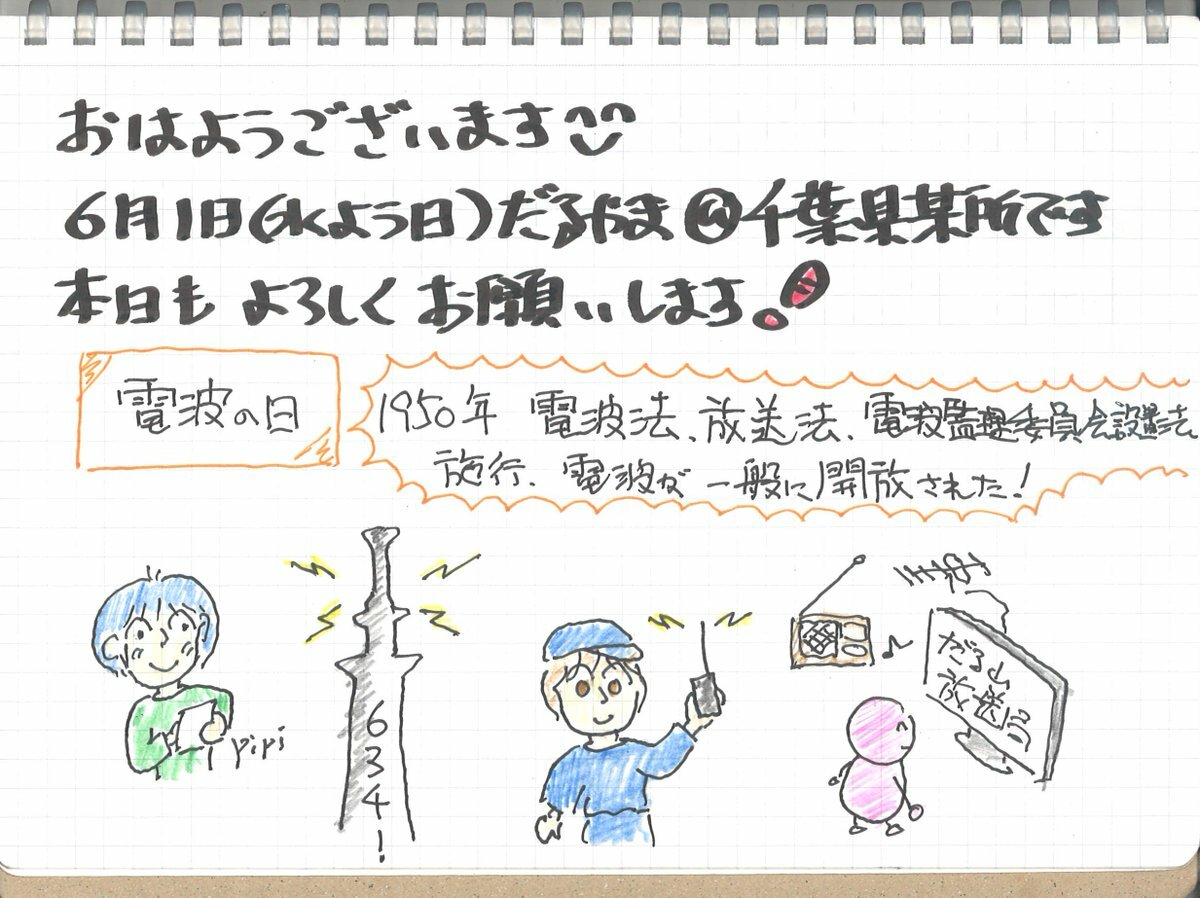 おはようございます
6月1日(水よう日)だるやま@千葉県某所です
本日も よろしく お願いします!
電波の日
1950年 電波法、放送法、電波監理委員会設置法、
施行、電波が 一般に開放された!
pipi
634!
♪
だる山
放送局